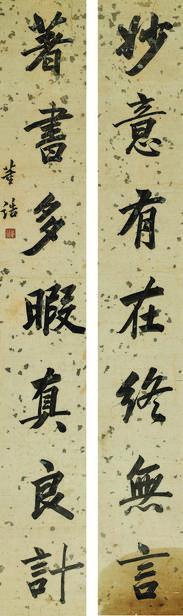 妙意有在終無言
著書多暇真良計
董誥